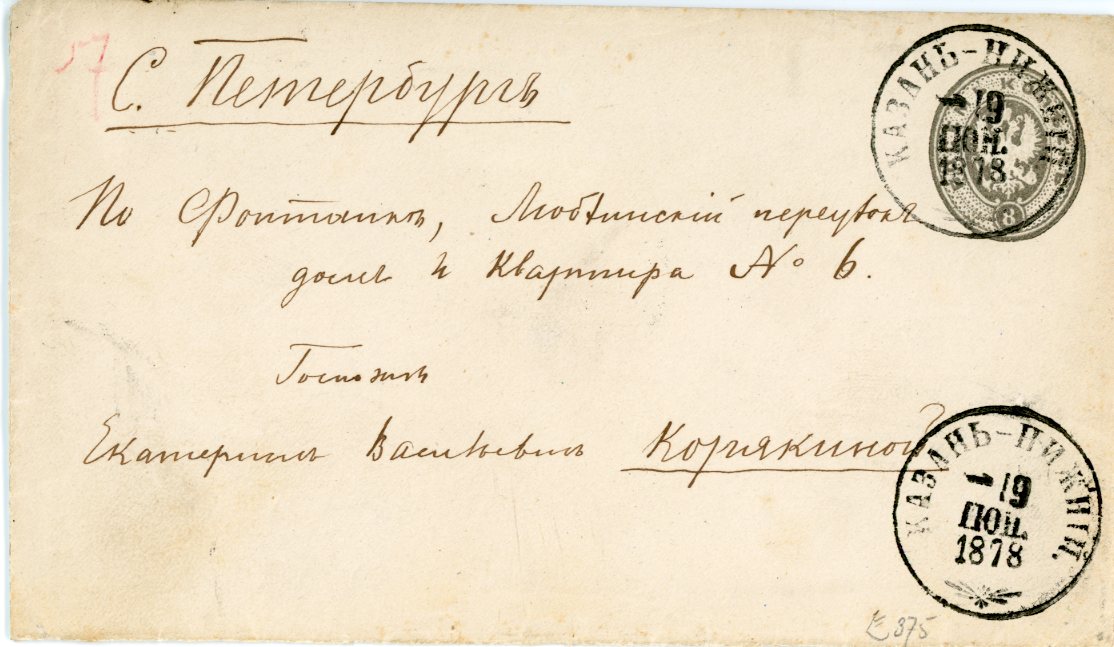 57
С. Петербургъ
По Фонтанкѣ, переулокъ
домъ и квартира № 6.
Госпожѣ
Екатеринѣ Васильевнѣ Корякиной
КАЗАНЬ-НИЖНІЙ
19
1878
8
КАЗАНЬ-НИЖНІЙ.
19
1878
875